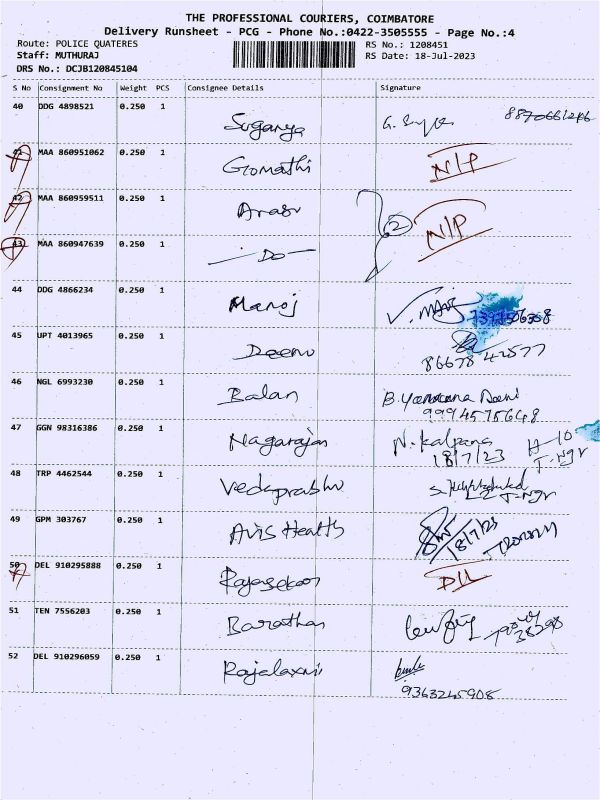 THE PROFESSIONAL COURIERS, COIMBATORE
Delivery Runsheet - PCG - Phone No.:0422-3505555 - Page No.:4
Route: POLICE QUATERES
RS No.: 1208451
Staff: MUTHURAJ
RS Date: 18-Jul-2023
DRS No.: DCJB120845104
S No Consignment No Weight PCS Consignee Details Signature
40 DDG 4898521 0.250 1 Suganya
41 MAA 860951062 0.250 1 Gomathi N/P
42 MAA 860959511 0.250 1 Arasu 2 N/P
43 MAA 860947639 0.250 1 - Do -
44 DDG 4866234 0.250 1 Manoj
45 UPT 4013965 0.250 1
86678 42577
46 NGL 6993230 0.250 1 Balan B.
99945 75648
47 GGN 98316386 0.250 1 Nagarajan N. Kalpana H-10
18/7/23 T.Ngr
48 TRP 4462544 0.250 1 Vedaprabhu
49 GPM 303767 0.250 1 Avis Health
18/7/23
50 DEL 910295888 0.250 1
51 TEN 7556203 0.250 1 Barathan
52 DEL 910296059 0.250 1 Rajalaxmi
9363245908